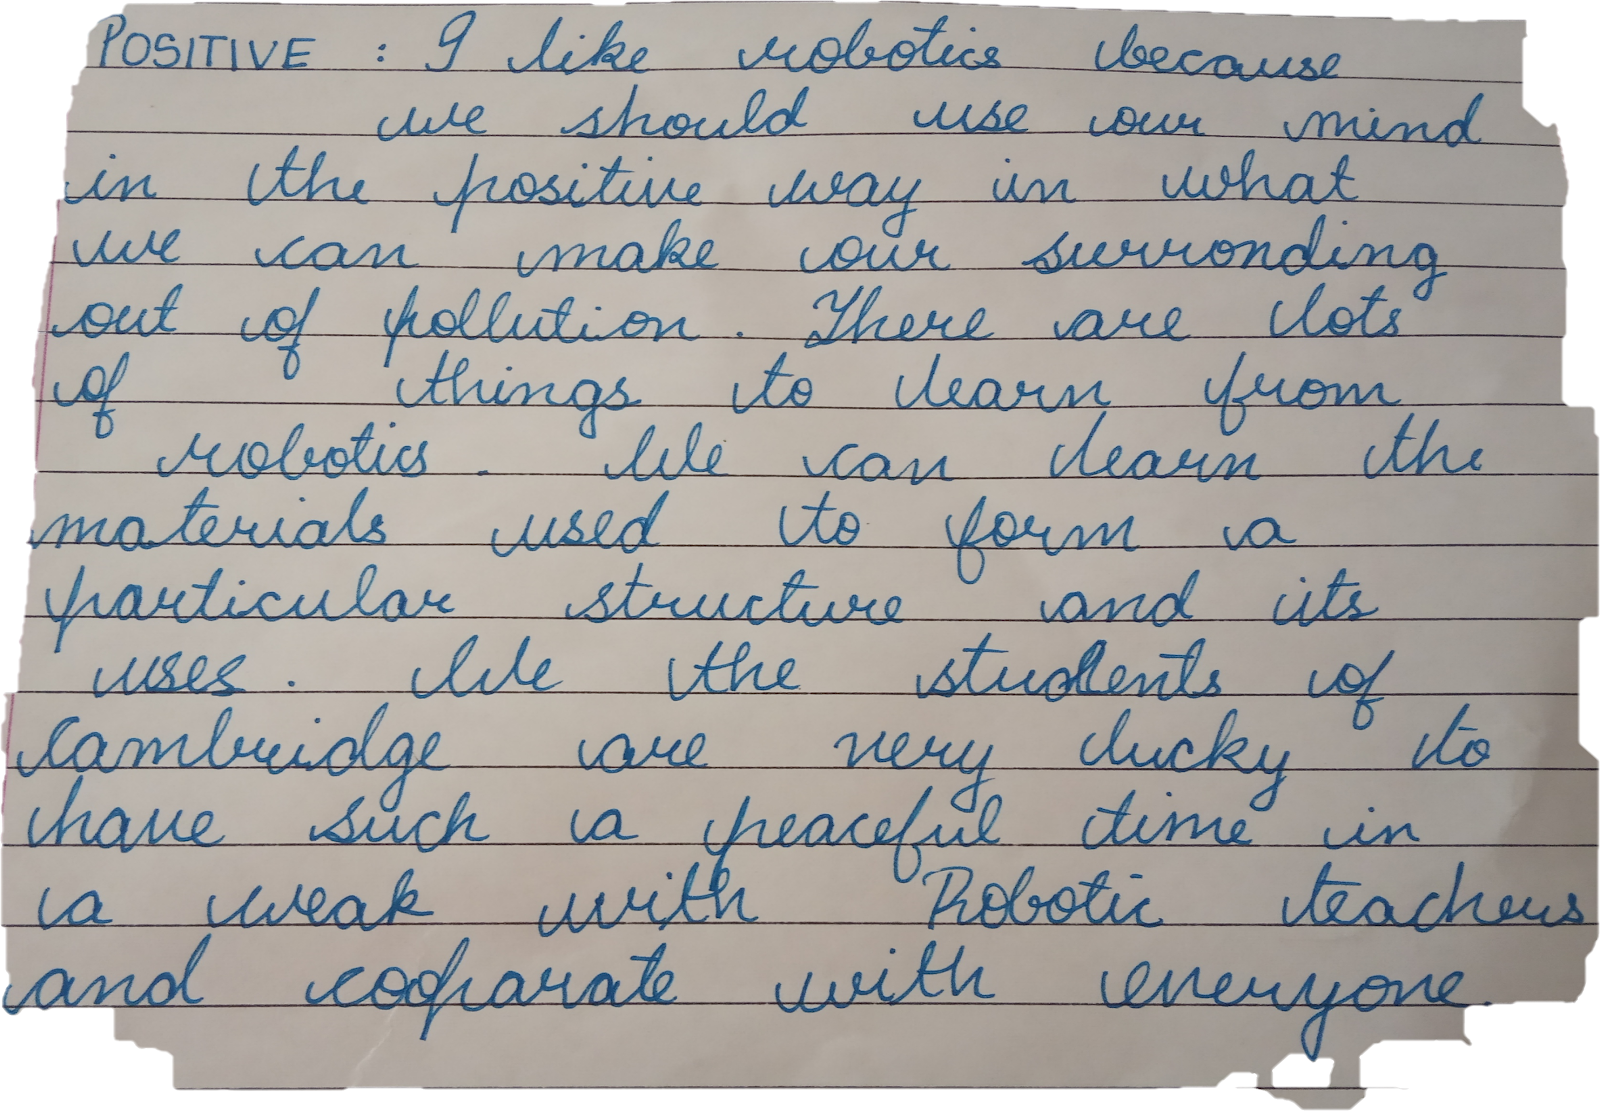 POSITIVE : I like robotics because
we should use our mind
in the positive way in what
we can make our surronding
out of pollution. There are lots
of things to learn from
robotics. We can learn the
materials used to form a
particular structure and its
uses. We the students of
Cambridge are very lucky to
have such a peaceful time in
a weak with Robotic teachers
and cooparate with everyone.